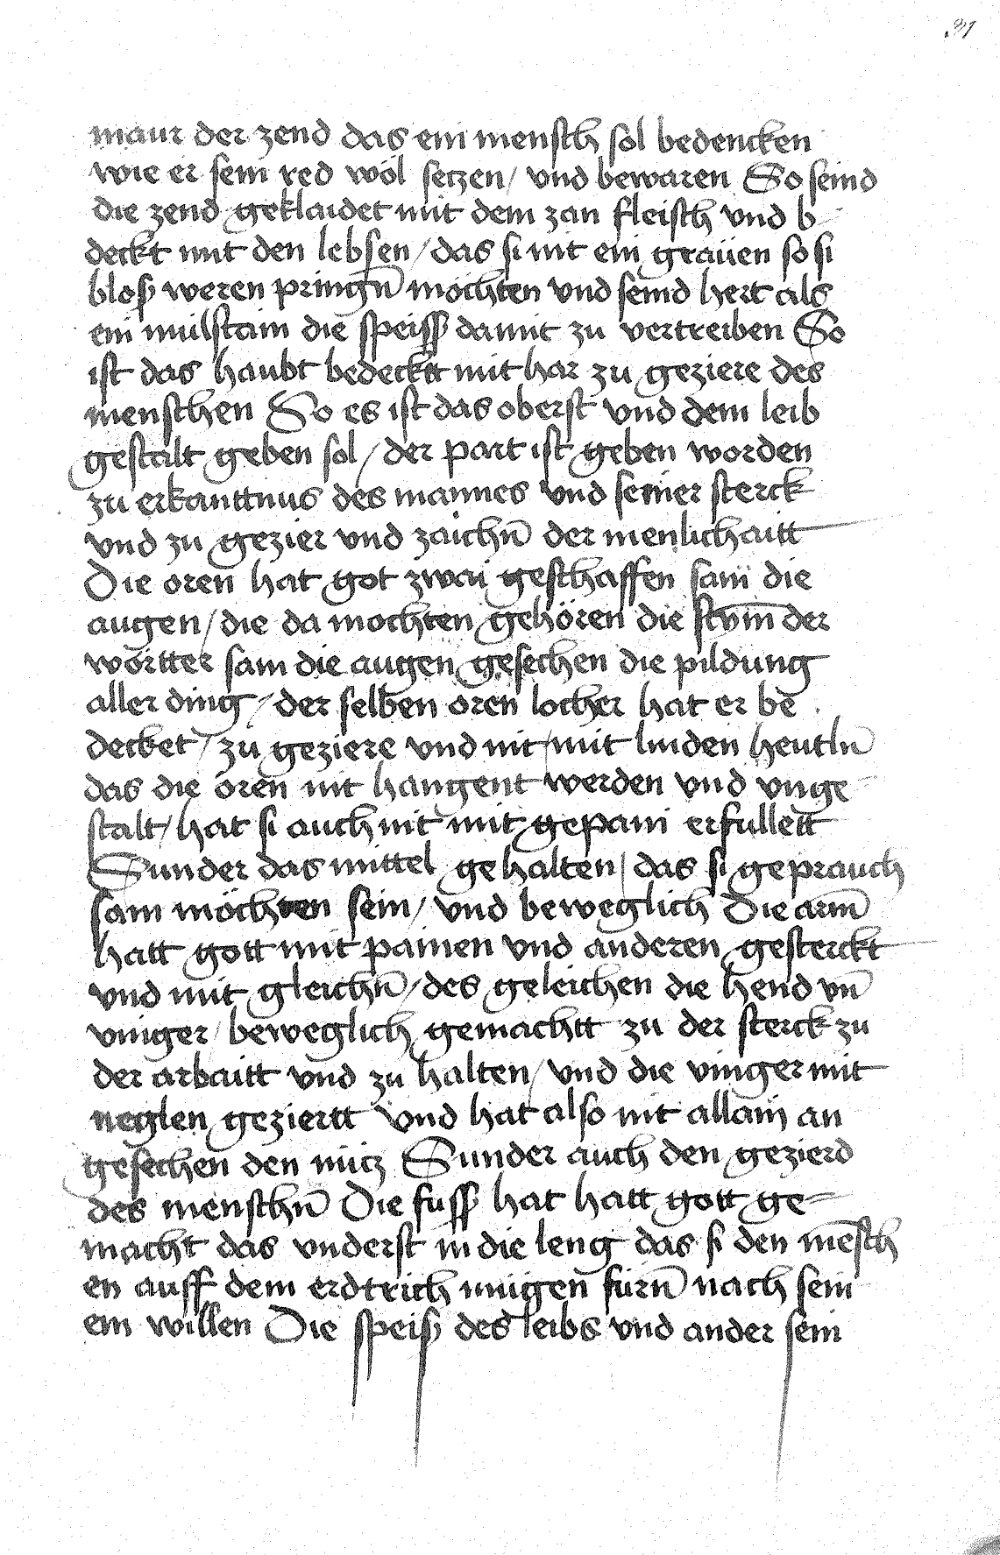 31
maur der zend das ein mensch sol bedencken
wie er sein red wol setzen / vnd bewaren So seind
die zend geklaidet mit dem zan fleisch vnd b
deckt mit den lebsen / das si nit ein graüen so si
blosz weren pringn̄ möchten vnd seind hert als
ein mülstain die speiss damit zu vertreiben So
ist das haubt bedecktt mit har zu geziere des
menschen So es ist das oberst vnd dem leib
gestalt geben sol / der part ist geben worden
zu erkanttnus des mannes vnd seiner sterck
vnd zu gezier vnd zaichn̄ der menlichaitt
Die oren hat got zwai geschaffen sam die
augen / die da mochten gehören die stym̄ der
wörtter sam die augen gesechen die pildung
aller ding / der selben oren locher hat er be
decket / zu geziere vnd nit mit linden heutln̄
das die oren nit hangent werden vnd vnge
stalt / hat si auch nit mit gepain erfullett
Sunder das mittel gehalten / das si geprauch
sam möchten sein / vnd beweglich Die arm̄
hatt gott mit painen vnd anderen gesterckt
vnd mit gleichn̄ / des geleichen die hend vn̄
vinger / beweglich gemachtt zu der sterck zu
der arbaitt vnd zu halten / vnd die vinger mit
neglen geziertt vnd hat also nit allain an
gesechen den nütz Sunder auch den gezierd
des menschn̄ Die fuss hat hatt gott ge=
macht das vnderst in die leng das si den mēsch
en auff dem erdtrich mügen fürn̄ nach sein
em willen Die speisz des leibs vnd ander sein